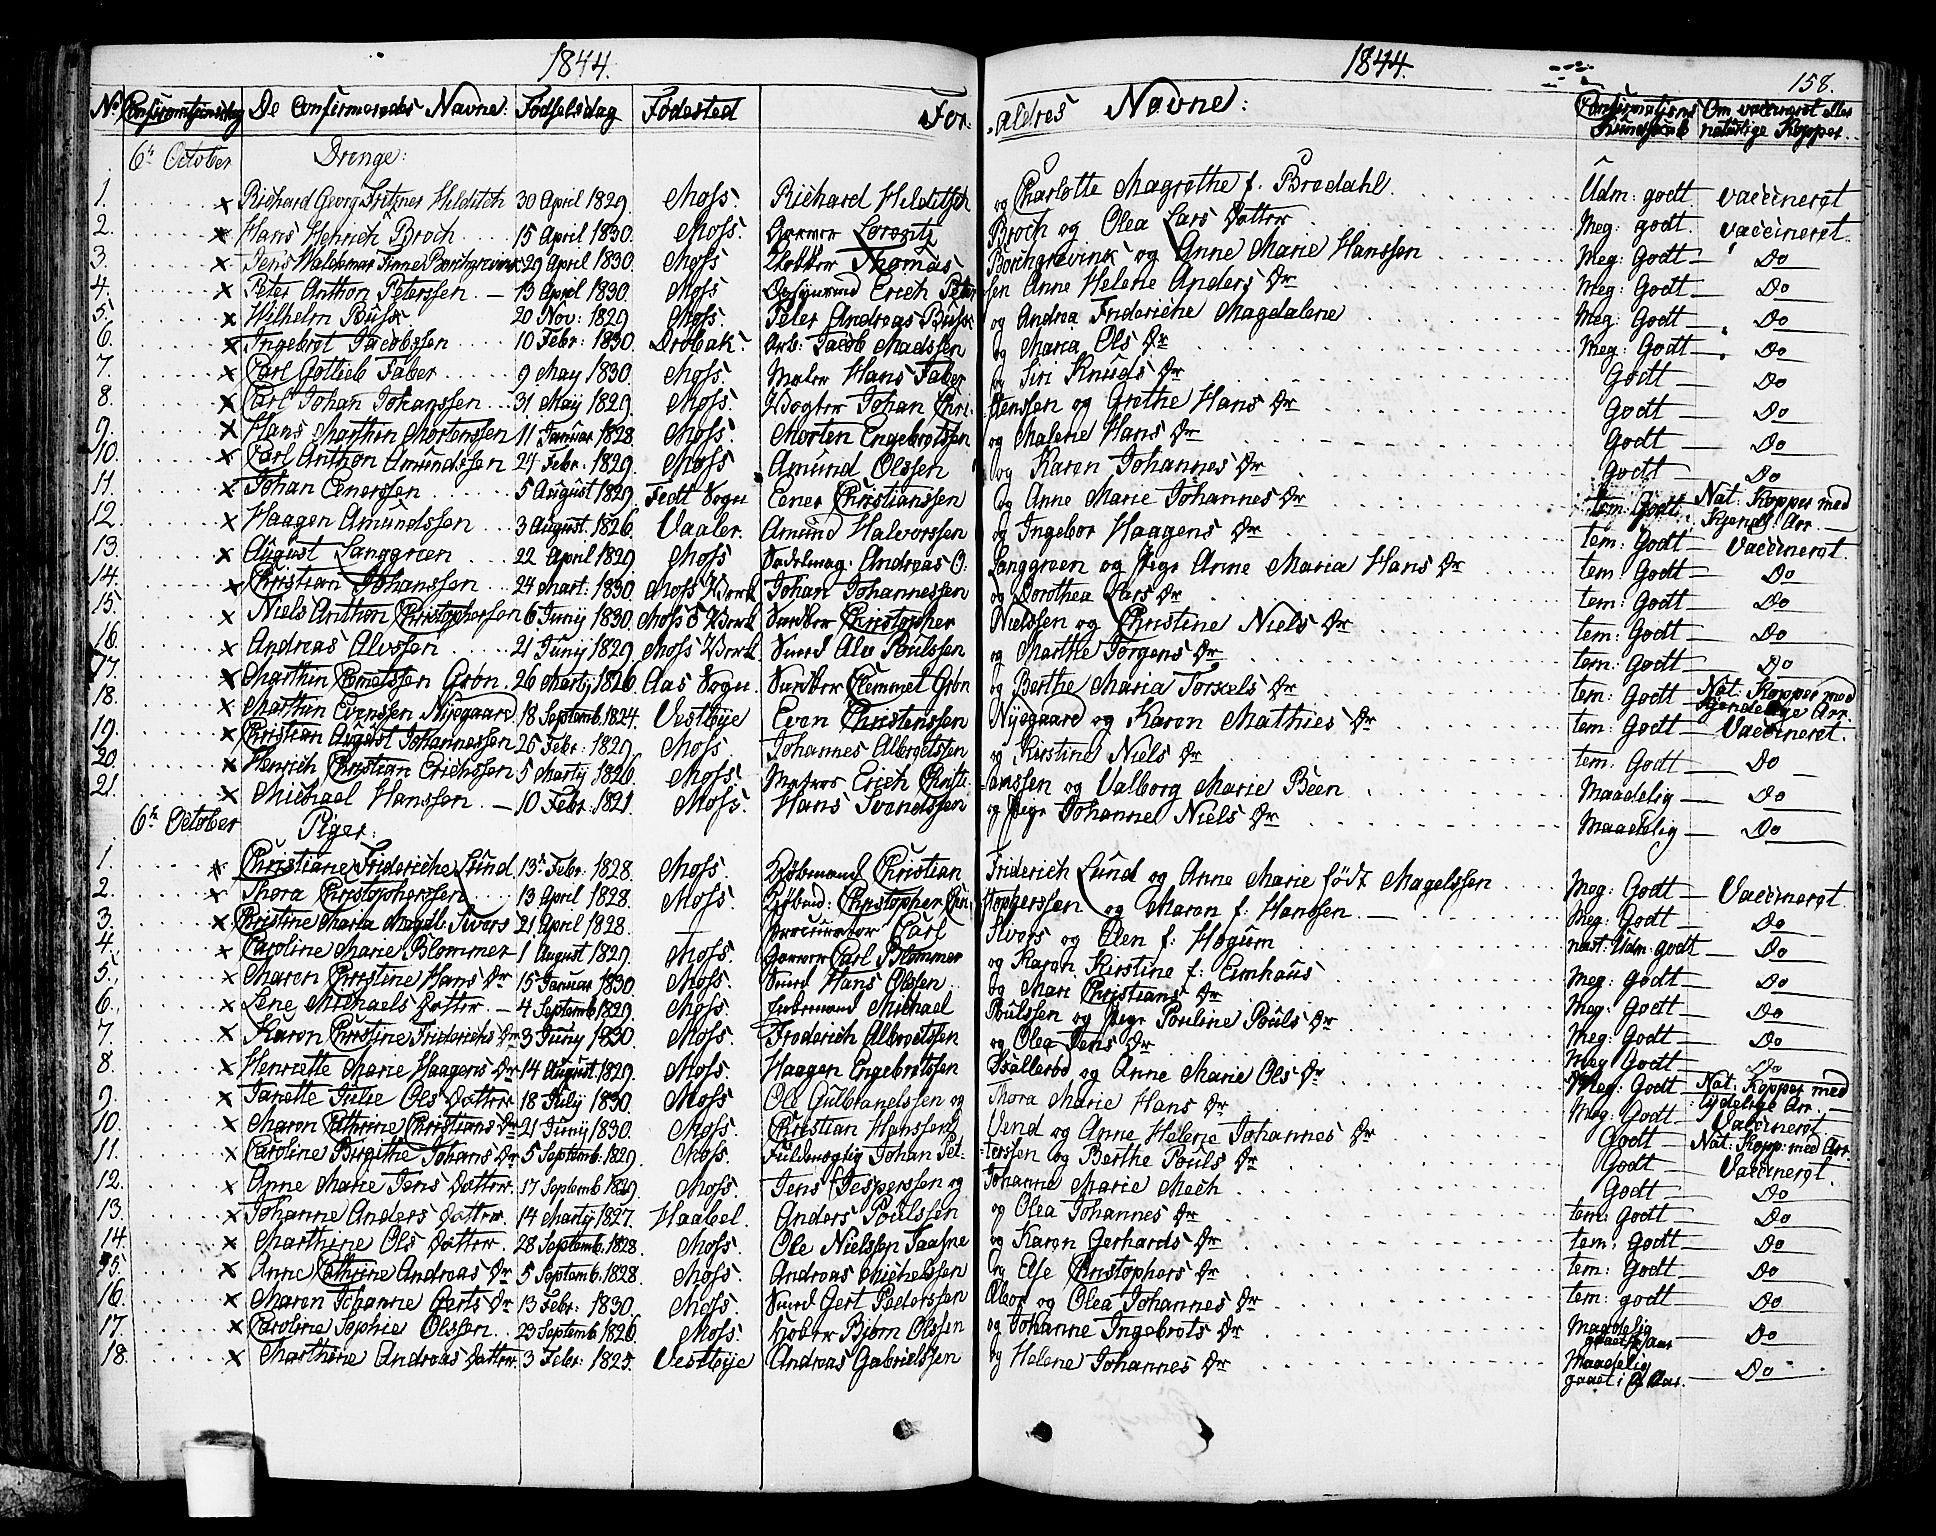 1844.
1844.
158.
No Confirmationsdag De Confirmeredes Navne: Fødselsdag Fødested For- ældres Navne: Confirmations Kundskab Om vaccineret eller naturlige Kopper.
6te October Drenge:
1. × Richard Georg Fritzner Hilditch 30 April 1829. Moss. Richard Hilditsch og Charlotte Magrethe f. Bredahl. Udm: godt vaccineret
2. × Hans Henrich Broch 15 April 1830. Moss. Garver Lorentz Broch og Olea Lars Datter Meg: godt. vaccineret.
3. × Jens Waldemar Finne Borchgrevink 29 April 1830. Moss Thomas Borchgrevink og Anne Marie Hanssen Meg: Godt — Do
4. × Peter Anthon Peterssen — 13 April 1830. Moss Erich Peter- sen Anne Helene Anders Dr Meg: Godt — Do
5. × Wilhelm Busk 20 Nov: 1829 Moss. Peter Andreas Busk og Andrea Frideriche Magdalene Meg: Godt — Do
6. × Ingebret Jacobssen 10 Febr: 1830. Drøbak. Arb: Jacob Madssen og Maria Ols Dr Meg: Godt — Do
7. × Carl Gottlieb Faber 9 May 1830. Moss. Maler Hans Faber og Siri Knuds Dr Godt — Do
8. × Carl Johan Johanssen 31 May 1829. Moss. Vogter Johan Chri- stenssen og Grethe Hans Dr Godt — Do
9. × Hans Marthin Mortenssen 11 Januar 1828. Moss. Morten Engebretssen og Malene Hans Dr Godt — Do
10. × Carl Anthon Amundssen 24 Febr: 1829. Moss. Amund Olssen og Karen Johannes Dr godt — Do
11. × Johan Enerssen 5 August 1829. Fedt Sogn Ener Christianssen og Anne Marie Johannes Dr tem: Godt. Nat: Kopper med Kjendel: Arr.
12. × Haagen Amundssen 3 August. 1826. Vaaler. Amund Halvorssen og Ingebor Haagens Dr tem: Godt — Vaccineret
13. × August Langgreen 22 April 1829. Moss Sadelmag: Andreas O. Langgreen og Pige Anne Maria Hans Dr tem: Godt — Do
14. × Christian Johanssen 24 Mart: 1830. Moss Værk Johan Johannessen og Dorothea Lars Dr tem: Godt — Do
15. × Niels Anthon Christopherssen 6 Juny 1830. Moss Værk. Christopher Nielssen og Christine Niels Dr tem: Godt — Do
16. × Andreas Alvssen 21 Juny 1829. Moss Værk. Smed Alv Poulssen og Marthe Jørgens Dr tem: Godt — Do
17. × Marthin Clemetssen Grøn. 26 Martij 1826. Aas Sogn Clemmet Grøn og Berthe Maria Torkels Dr tem: Godt Nat: Kopper med kjendelige Arr.
18. × Marthin Evenssen Nyegaard 18 Septemb. 1824. Vestbye Even Christenssen Nyegaard og Karen Mathies Dr tem: Godt — Vaccineret.
19. × Christian August Johannessen 26 Febr: 1829. Moss. Johannes Albretssen og Kirstine Niels Dr tem: Godt — Do
20. × Henrich Christian Erichssen 5 Martij 1826. Moss. Matros Erich Christi- anssen og Valborg Marie Been Maadelig — Do
21. × Michael Hanssen — 10 Febr: 1821. Moss. Hans Svendssen og Pige Johanne Niels Dr Maadelig — Do
6te October Piger:
1. × Christiane Frideriche Lund. 13 Febr: 1828. Moss. Kjøbmand Christian Friderich Lund og Anne Marie født Magelssen Meg: Godt — Vaccineret
2. × Thora Christopherssen 13 April 1828. Moss. Kjøbmd: Christopher Chri- stopherssen og Maren f: Hanssen. Meg: Godt — Do
3. × Christine Maria Magdl: Sivers 21 April 1828. — Procurator Carl Sivers og Elen f: Høgum næst: Udm: godt — Do
4. × Caroline Marie Blommer 1 August 1829. Moss. Garver Carl Blommer og Karen Kirstine f: Eimhaus Meg: Godt — Do
5. × Maren Christine Hans Dr 15 Januar 1830. Moss. Smed Hans Olssen og Mari Christians Dr Meg: Godt — Do
6. × Lene Michaels Datter — 4 Septemb. 1829. Moss. Michael Poulssen og Pige Pouline Pouls Dr Meg: Godt — Do
7. × Karen Christine Friderichs Dr 3 Juny 1830. Moss. Frederich Albretssen og Olea Jens Dr Meg: Godt — Do
8. × Henriette Marie Haagens Dr 14 August 1829. Moss. Haagen Engebretssen og Anne Marie Ols Dr Meg: Godt Nat: Kopper med tydelige Arr.
9. × Janette Julie Ols Datter 18 July 1830. Moss Ole Gulbrandssen og Thora Marie Hans Dr Meg: Godt — Vaccineret
10. × Maren Cathrine Christians Dr 21 Juny 1830. Moss. Christian Hanssen Vend og Anne Helene Johannes Dr Godt — Nat: Kopp: med Arr.
11. × Caroline Birgithe Johans Dr 5 Septemb. 1829. Moss. Fuldmægtig Johan Pet- terssen og Berthe Pouls Dr Godt — Vaccineret.
12. × Anne Marie Jens Datter 17 Septemb. 1829. Moss. Jens Jesperssen og Johanne Marie Mech Godt — Do
13. × Johanne Anders Datter 14 Martij 1827. Haabel. Anders Poulssen og Olea Johannes Dr tem: Godt — Do
14. × Marthine Ols Datter 28 Septemb. 1828. Moss. Ole Nielssen og Karen Gerhards Dr tem: Godt — Do
15. × Anne Cathrine Andreas Dr 5 Septemb. 1828. Moss. Andreas Michelssen og Else Christophers Dr tem: Godt — Do
16. × Maren Johanne Gerts Dr 13 Febr: 1830. Moss. Smed Gert Peterssen og Olea Johannes Dr tem: godt — Do
17. × Caroline Sophie Olssen 23 Septemb. 1826. Moss. Bjørn Olssen og Johanne Ingebrets Dr Maadelig gaaet Aar — Do
18. × Marthine Andreas Datter. 3 Febr: 1825. Vestbye Andreas Gabrielssen og Helene Johannes Dr Maadelig gaaet i 2 Aar. — Do